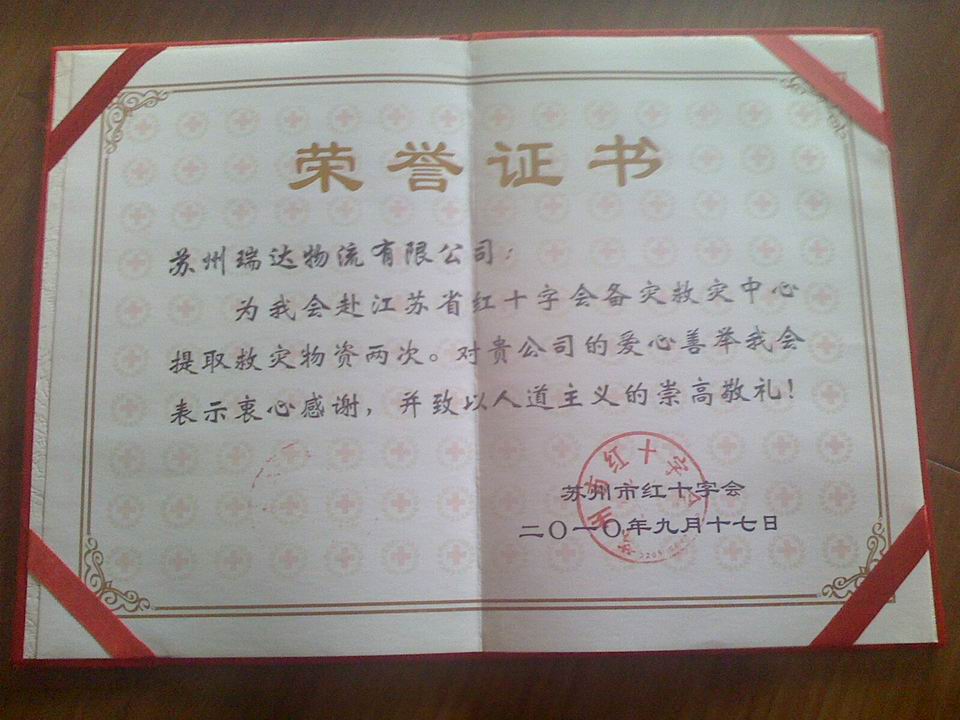 荣誉证书
苏州瑞达物流有限公司：
为我会赴江苏省红十字会备灾救灾中心
提取救灾物资两次。对贵公司的爱心善举我会
表示衷心感谢，并致以人道主义的崇高敬礼！
苏州市红十字会
二〇一〇年九月十七日